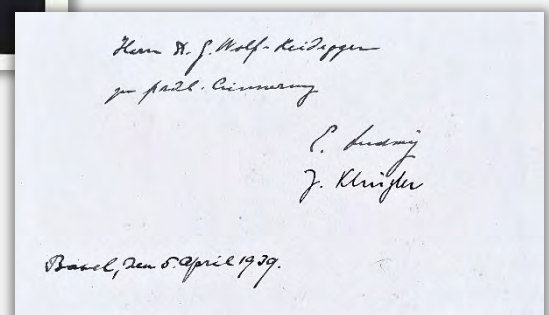 Herrn Dr. G. Wolf-Heidegger
zur frdl. Erinnerung
E. Ludwig
J. Klingler
Basel, den 5. April 1939.